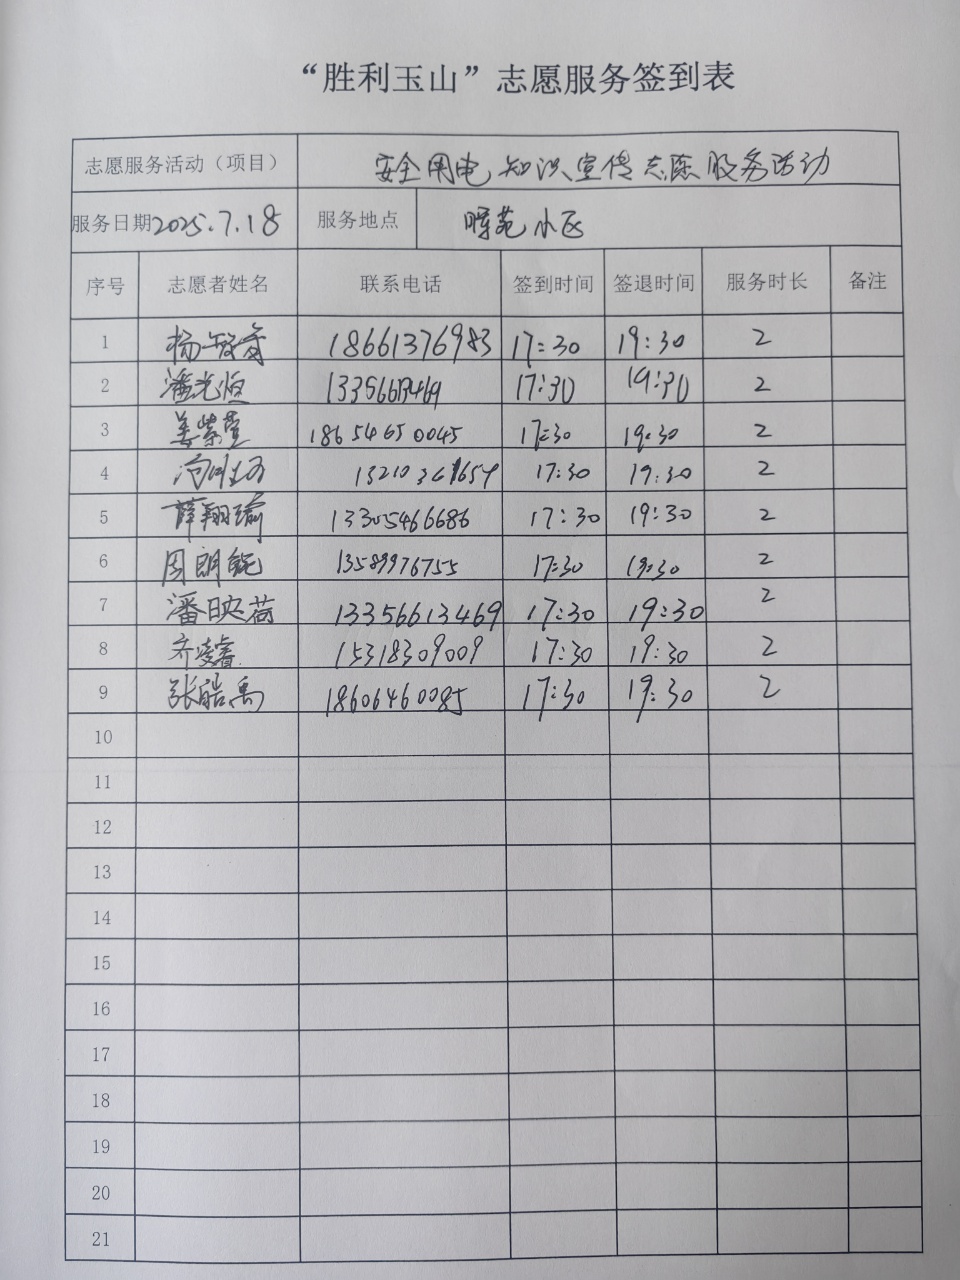 “胜利玉山”志愿服务签到表
志愿服务活动（项目） 安全用电知识宣传志愿服务活动
服务日期 2025.7.18 服务地点 晖苑小区
序号 志愿者姓名 联系电话 签到时间 签退时间 服务时长 备注
1 杨 18661376983 17:30 19:30 2
2 潘光恒 17:30 19:30 2
3 姜紫萱 18654650045 17:30 19:30 2
4 17:30 19:30 2
5 薛翔瑜 13305466686 17:30 19:30 2
6 周朗能 13589976755 17:30 19:30 2
7 潘映荷 13356613469 17:30 19:30 2
8 齐凌睿 15318309009 17:30 19:30 2
9 张皓禹 18606460085 17:30 19:30 2
10
11
12
13
14
15
16
17
18
19
20
21